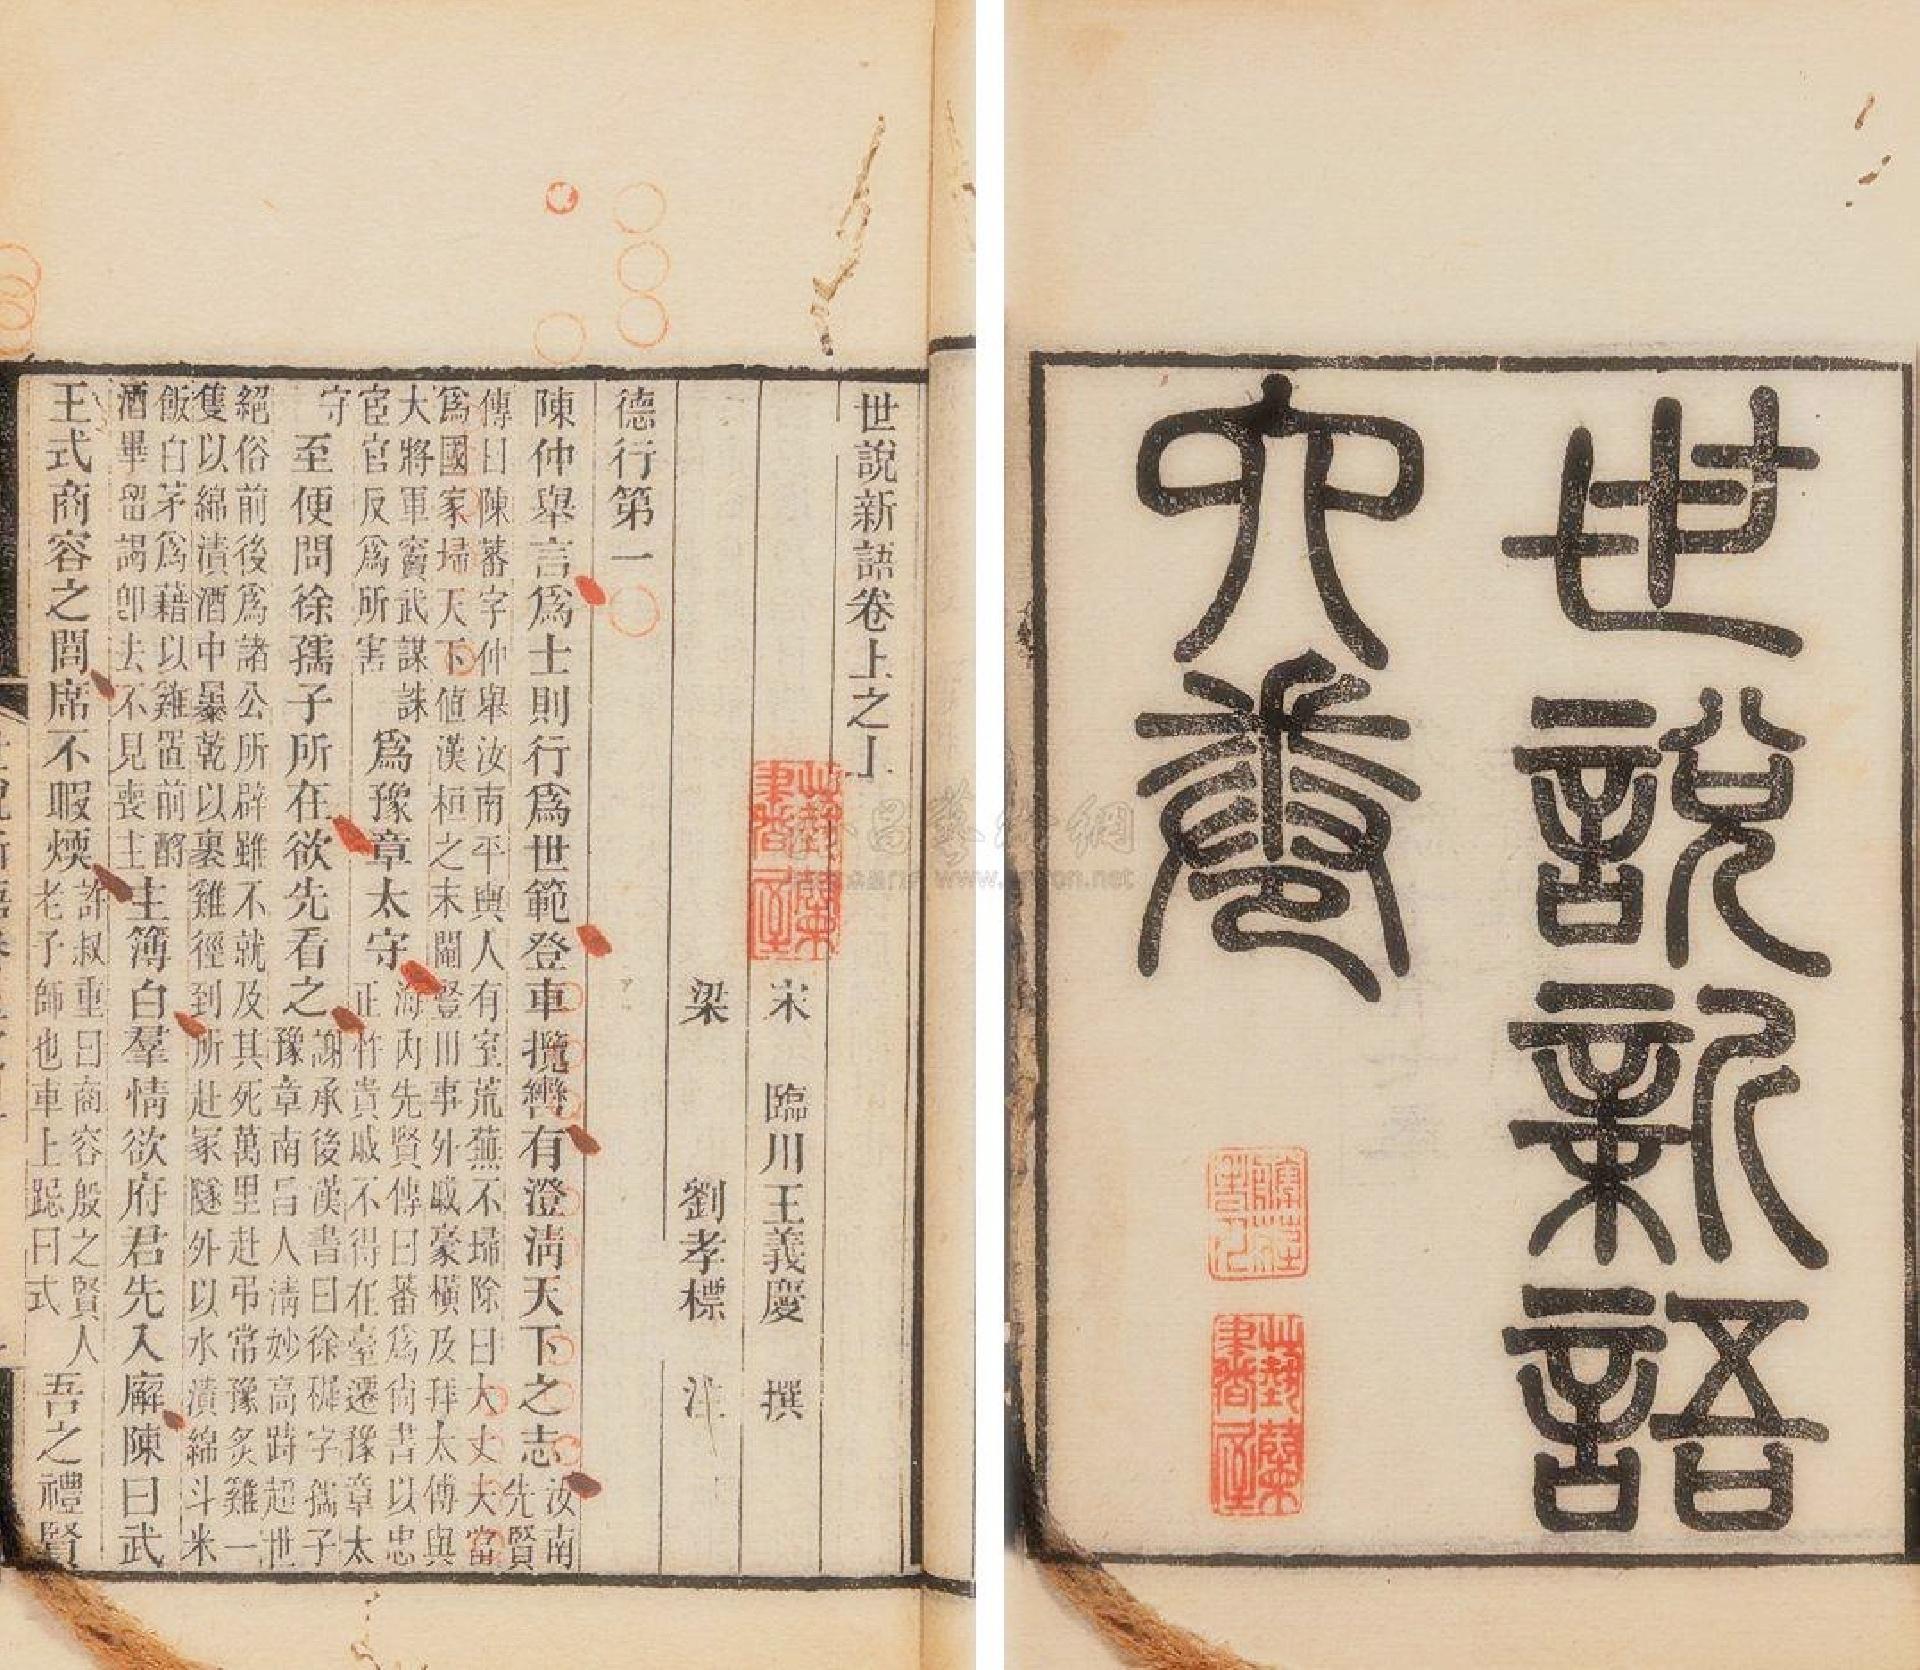 世說新語
六卷
世說新語卷上之上
宋　臨川王義慶　撰
梁　劉孝標　注
德行第一
陳仲舉言爲士則行爲世範登車攬轡有澄淸天下之志汝南
先賢
傳曰陳蕃字仲舉汝南平輿人有室荒蕪不埽除曰大丈夫當
爲國家埽天下値漢桓之末閹豎用事外戚豪橫及拜太傅與
大將軍竇武謀誅
宦官反爲所害
爲豫章太守
海內先賢傳曰蕃爲尙書以忠
正忤貴戚不得在臺遷豫章太
守
至便問徐孺子所在欲先看之
謝承後漢書曰徐穉字孺子
豫章南昌人淸妙高跱超世
絕俗前後爲諸公所辟雖不就及其死萬里赴弔常豫炙雞一
隻以綿漬酒中暴乾以裹雞徑到所赴冢隧外以水漬綿斗米
飯白茅爲藉以雞置前酹
酒畢留謁卽去不見喪主
主簿白羣情欲府君先入廨陳曰武
王式商容之閭席不暇煗
許叔重曰商容殷之賢人
老子師也車上跽曰式
吾之禮賢